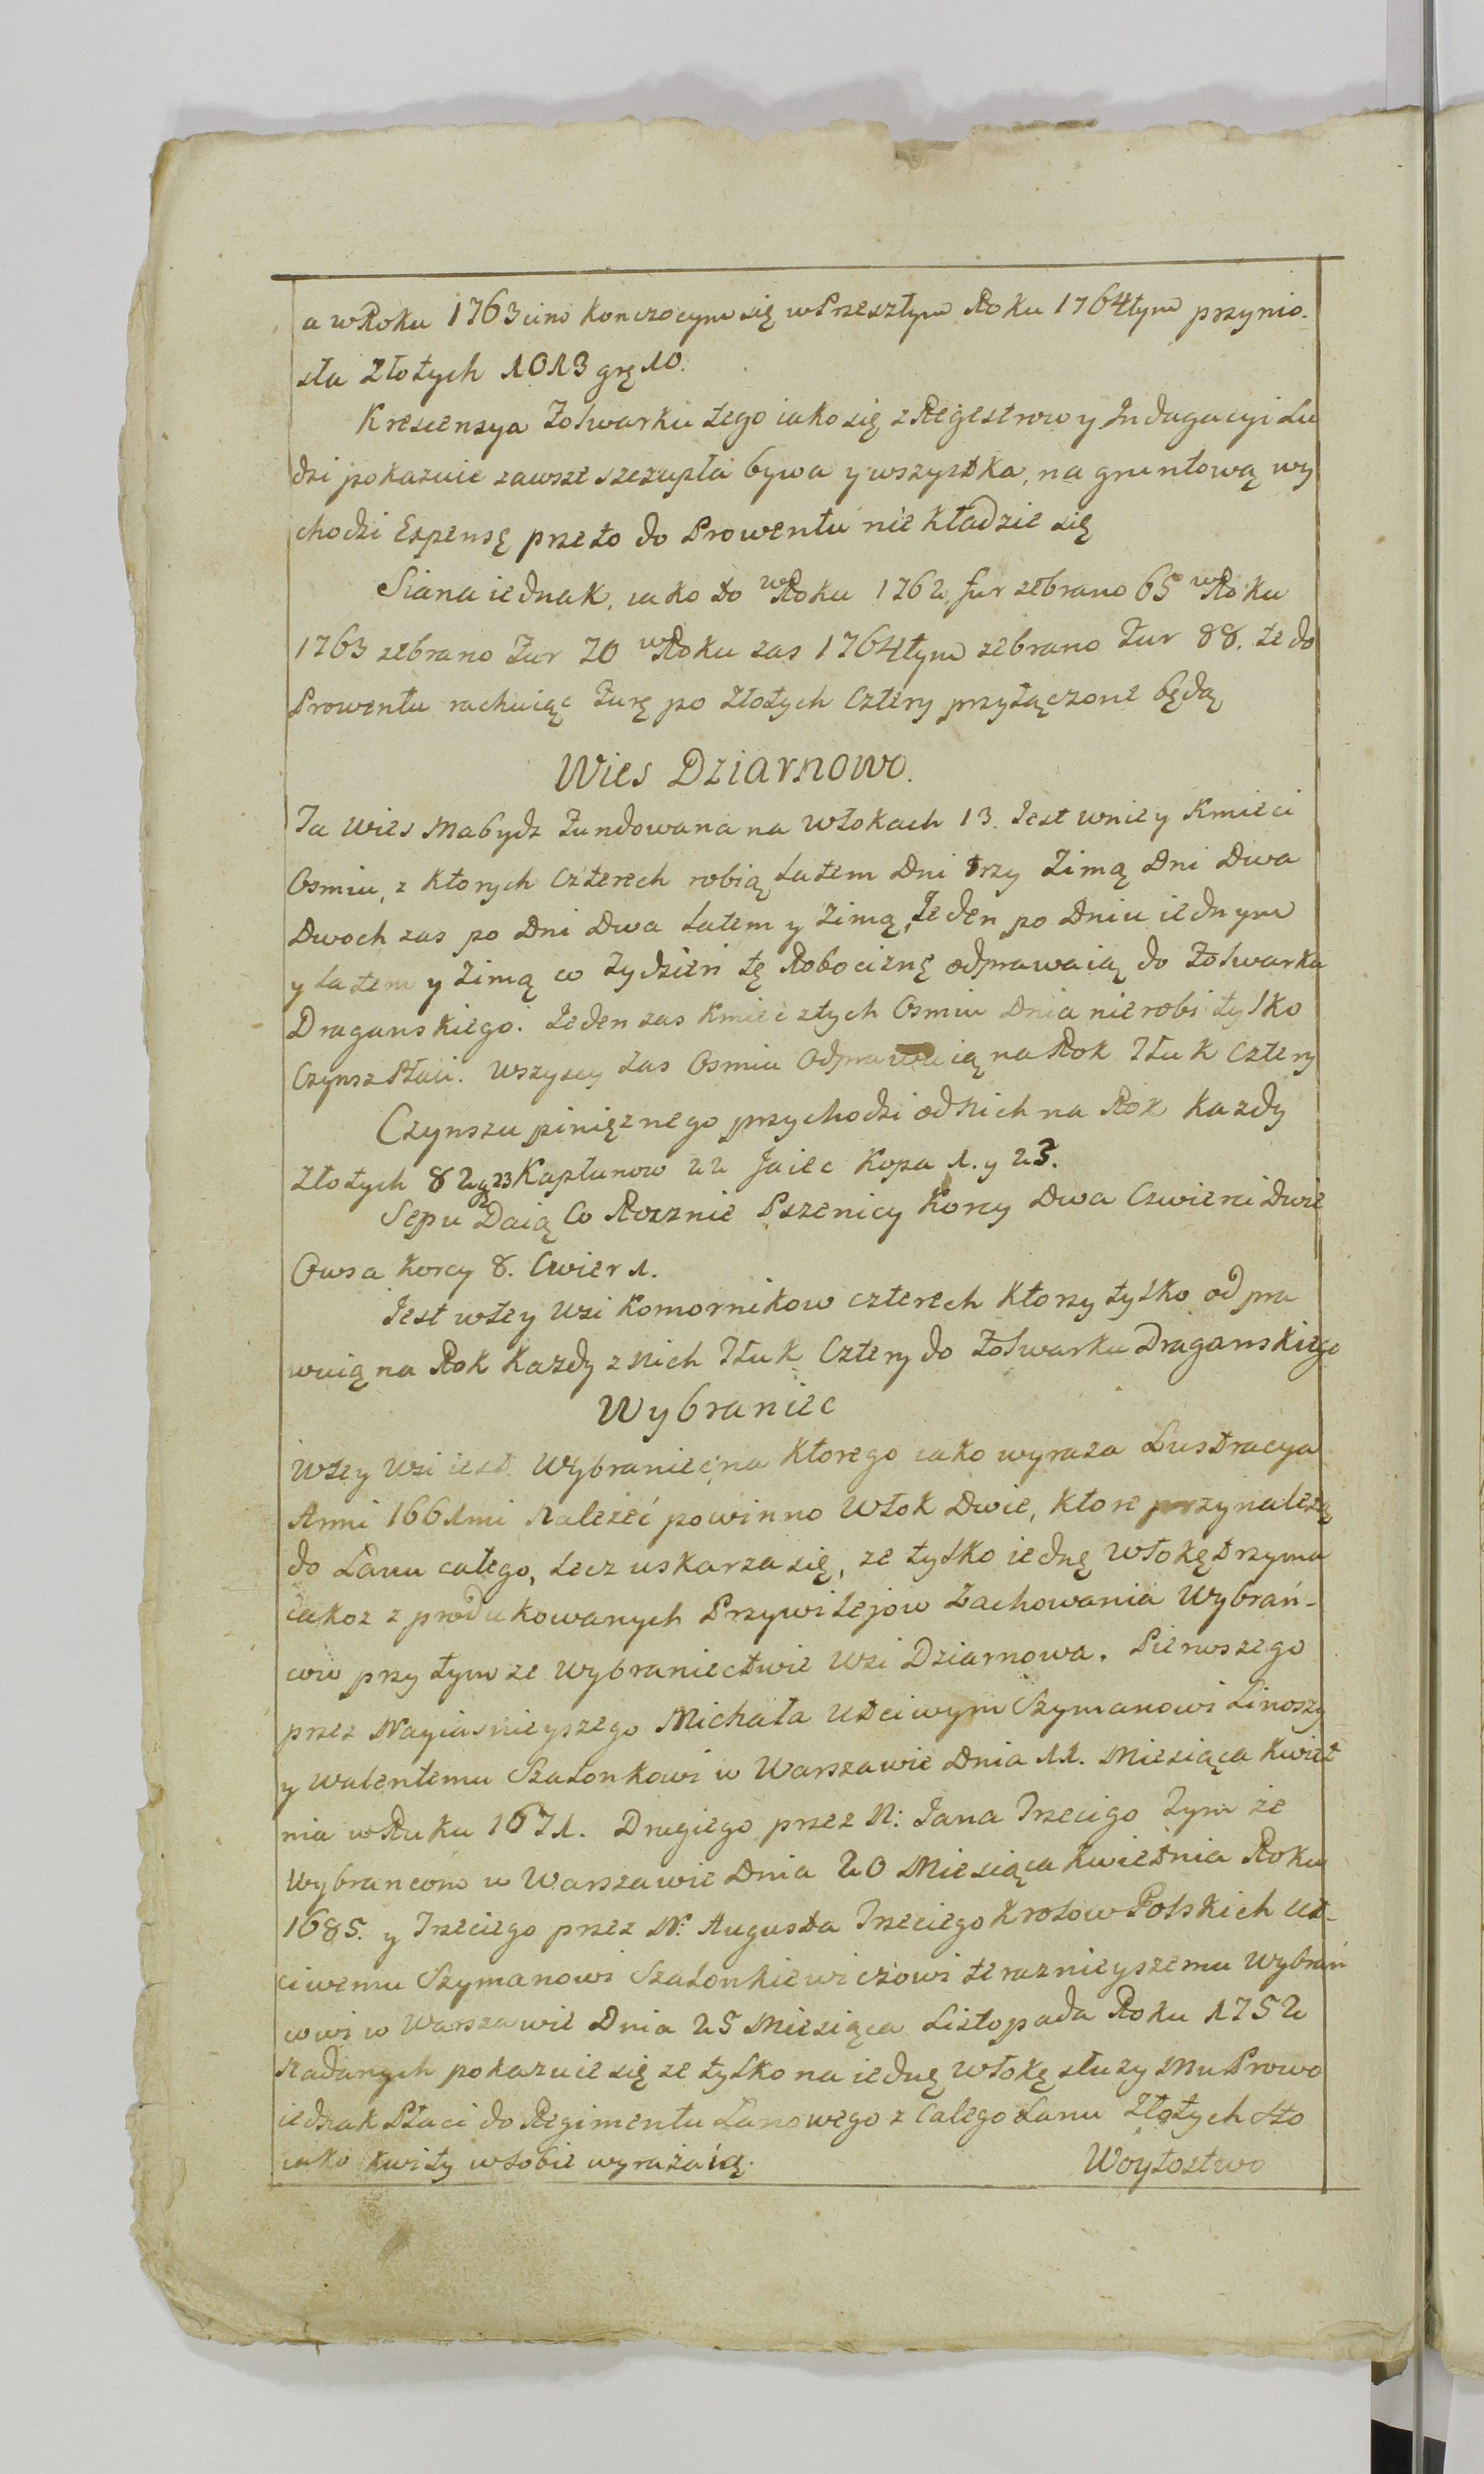 a w Roku 1763cim konczocym się w Przeszłym Roku 1764tym przynio-
sła Złotych 1013 grę 10.
Krescensya Folwarku tego iako się z Regestrow y Indagacyi Lu
dzi pokazuie zawsze szczupła bywa y wszystka, na gruntową wy
chodzi Expensę przeto do Prowentu nie kładzie się
Siana iednak, iako to w Roku 1762 fur zebrano 65 w Roku
1763 zebrano Fur 70 w Roku zas 1764tym zebrano Fur 88. te do
Prowentu rachuiąc Furę po Złotych Cztery przyłączone będą
Wies Dziarnowo.
Ta Wies ma bydz Fundowana na Włokach 13. Jest w niey Kmieci
Osmiu, z Ktorych Czterech robią Latem Dni trzy Zimą Dni Dwa
Dwoch zas po Dni Dwa Latem y Zimą, Jeden po Dniu iednym
y Latem y Zimą co Tydzień tę Robociznę odprawaią do Folwarku
Draganskiego. Jeden zas Kmieć z tych Osmiu Dnia nie robi tylko
Czynsz Płaci. Wszyscy zas Osmiu Odprawuią na Rok Tłuk Cztery
Czynszu pinięznego przychodzi od Nich na Rok Kazdy
Złotych 82 g 23 Kapłunow 22 Jaiec Kopa 1. y 23.
Sepu Daią Co Rocznie Pszenicy Korcy Dwa Czwierci Dwie
Owsa Korcy 8. Cwier 1.
Jest w tey Wsi Komornikow czterech Ktorzy tylko odpra
wuią na Rok Kazdy z Nich Tłuk Cztery do Folwarku Draganskiego
Wybraniec
W tey Wsi iest Wybraniec, na Ktorego iako wyraza Lustracya
Anni 1661mi Nalezeć powinno Włok Dwie, Ktore przynalezą
do Łanu całego, Lecz uskarza się, ze tylko iednę Włokę trzyma
iakoz z produkowanych Przywilejow Zachowania Wybrań-
cow przy tymze Wybraniectwie Wsi Dziarnowa. Pierwszego
przez Nayiasnieyszego Michała Utciwym Szymanowi Linoszy
y Walentemu Szalonkowi w Warszawie Dnia 11. Miesiąca Kwiet
nia w Ruku 1671. Drugiego przez N: Jana Trzecigo Tym że
Wybrancom w Warszawie Dnia 20 Miesiąca Kwietnia Roku
1685. y Trzeciego przez N: Augusta Trzeciego Krolow Polskich Ut-
ciwemu Szymanowi Szalonkiewiczowi teraznieyszemu Wybrań
cowi w Warszawie Dnia 25 Miesiąca Listopada Roku 1752
Nadanych pokazuie się ze tylko na iednę Włokę słuzy Mu Prawo
iednak Płaci do Regimentu Łanowego z Całego Łanu Złotych Sto
iako Kwity w sobie wyrażaią.
Woytostwo